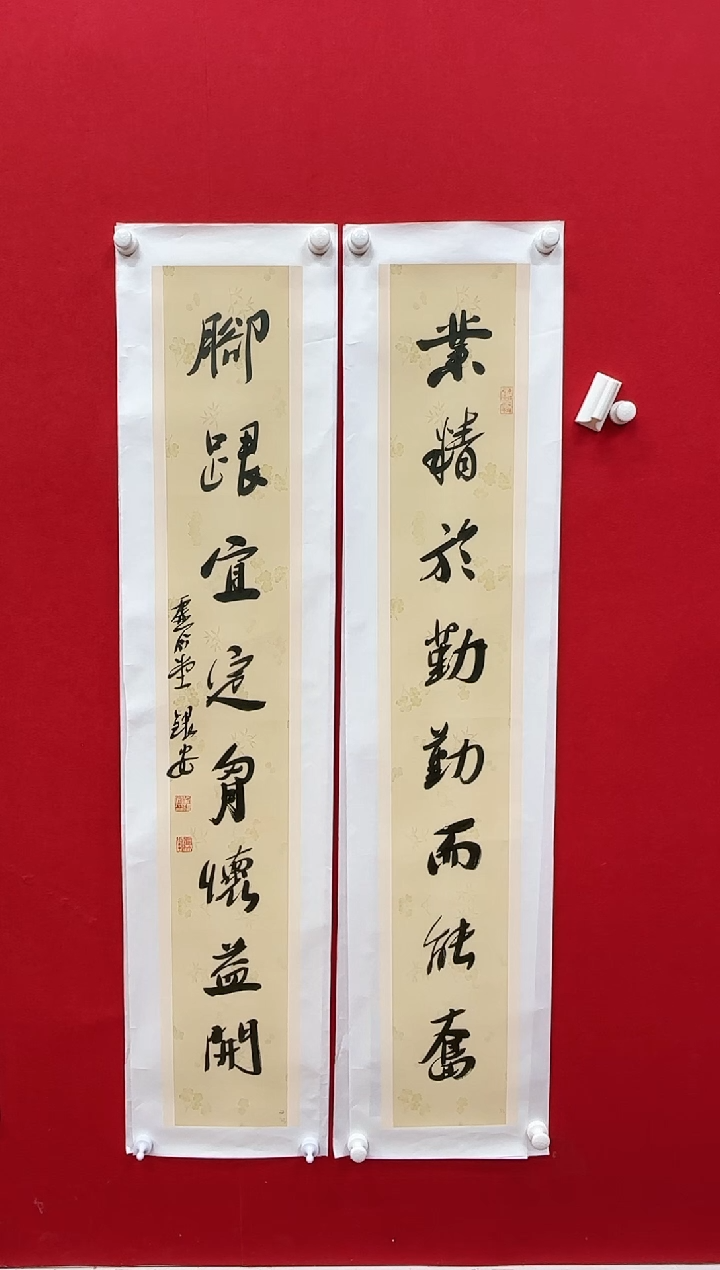 業精於勤勤而能奮
腳跟宜定胷懷益開
銀安